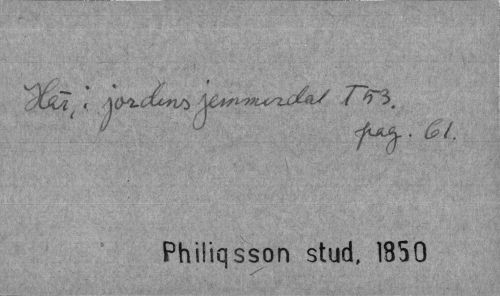 Här, i jordens jemmerdal T 53.
pag. 61.
Philiqsson stud, 1850